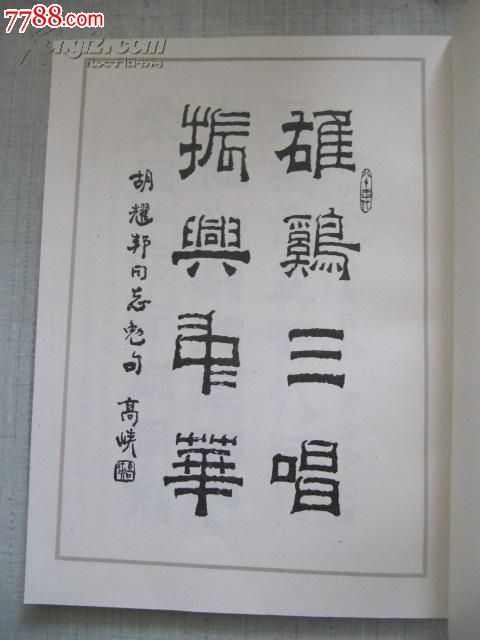 7788.com
Kongfz.com
孔夫子旧书网
雄鷄三唱
振興中華
胡耀邦同志勉句 高峡